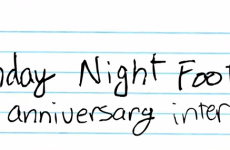 day Night Foot
anniversary inter